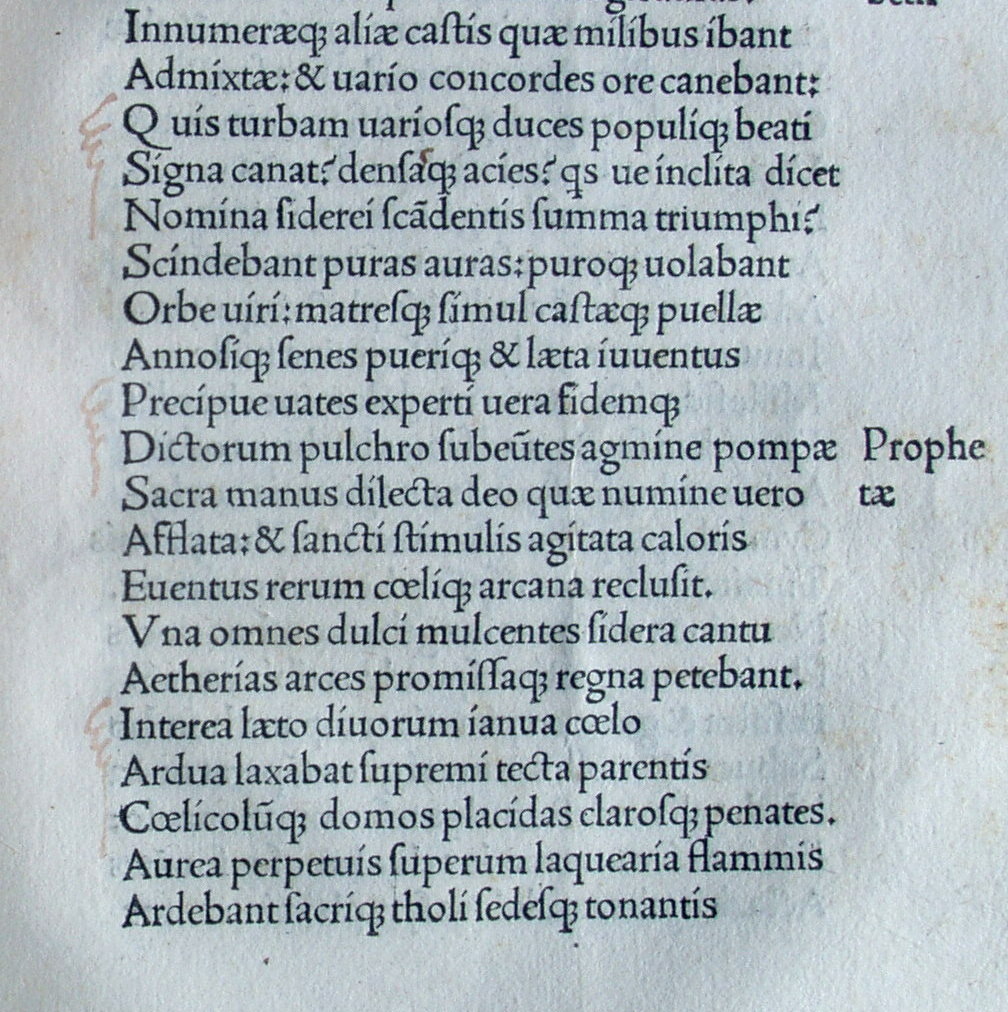 Innumeræqꝫ aliæ caſtis quæ milibus ibant
Admixtæ: & uario concordes ore canebant:
Quis turbam uarioſqꝫ duces populiqꝫ beati
Signa canat? denſaſqꝫ acies? qs ue inclita dicet
Nomina ſiderei ſcãdentis ſumma triumphi?
Scindebant puras auras: puroqꝫ uolabant
Orbe uiri: matreſqꝫ ſimul caſtæqꝫ puellæ
Annoſiqꝫ ſenes pueriqꝫ & læta iuuentus
Precipue uates experti uera fidemqꝫ
Dictorum pulchro ſubeũtes agmine pompæ Prophe
Sacra manus dilecta deo quæ numine uero tæ
Afflata: & ſancti ſtimulis agitata caloris
Euentus rerum cœliqꝫ arcana recluſit.
Vna omnes dulci mulcentes ſidera cantu
Aetherias arces promiſſaqꝫ regna petebant.
Interea læto diuorum ianua cœlo
Ardua laxabat ſupremi tecta parentis
Cœlicolũqꝫ domos placidas claroſqꝫ penates.
Aurea perpetuis ſuperum laquearia flammis
Ardebant ſacriqꝫ tholi ſedeſqꝫ tonantis